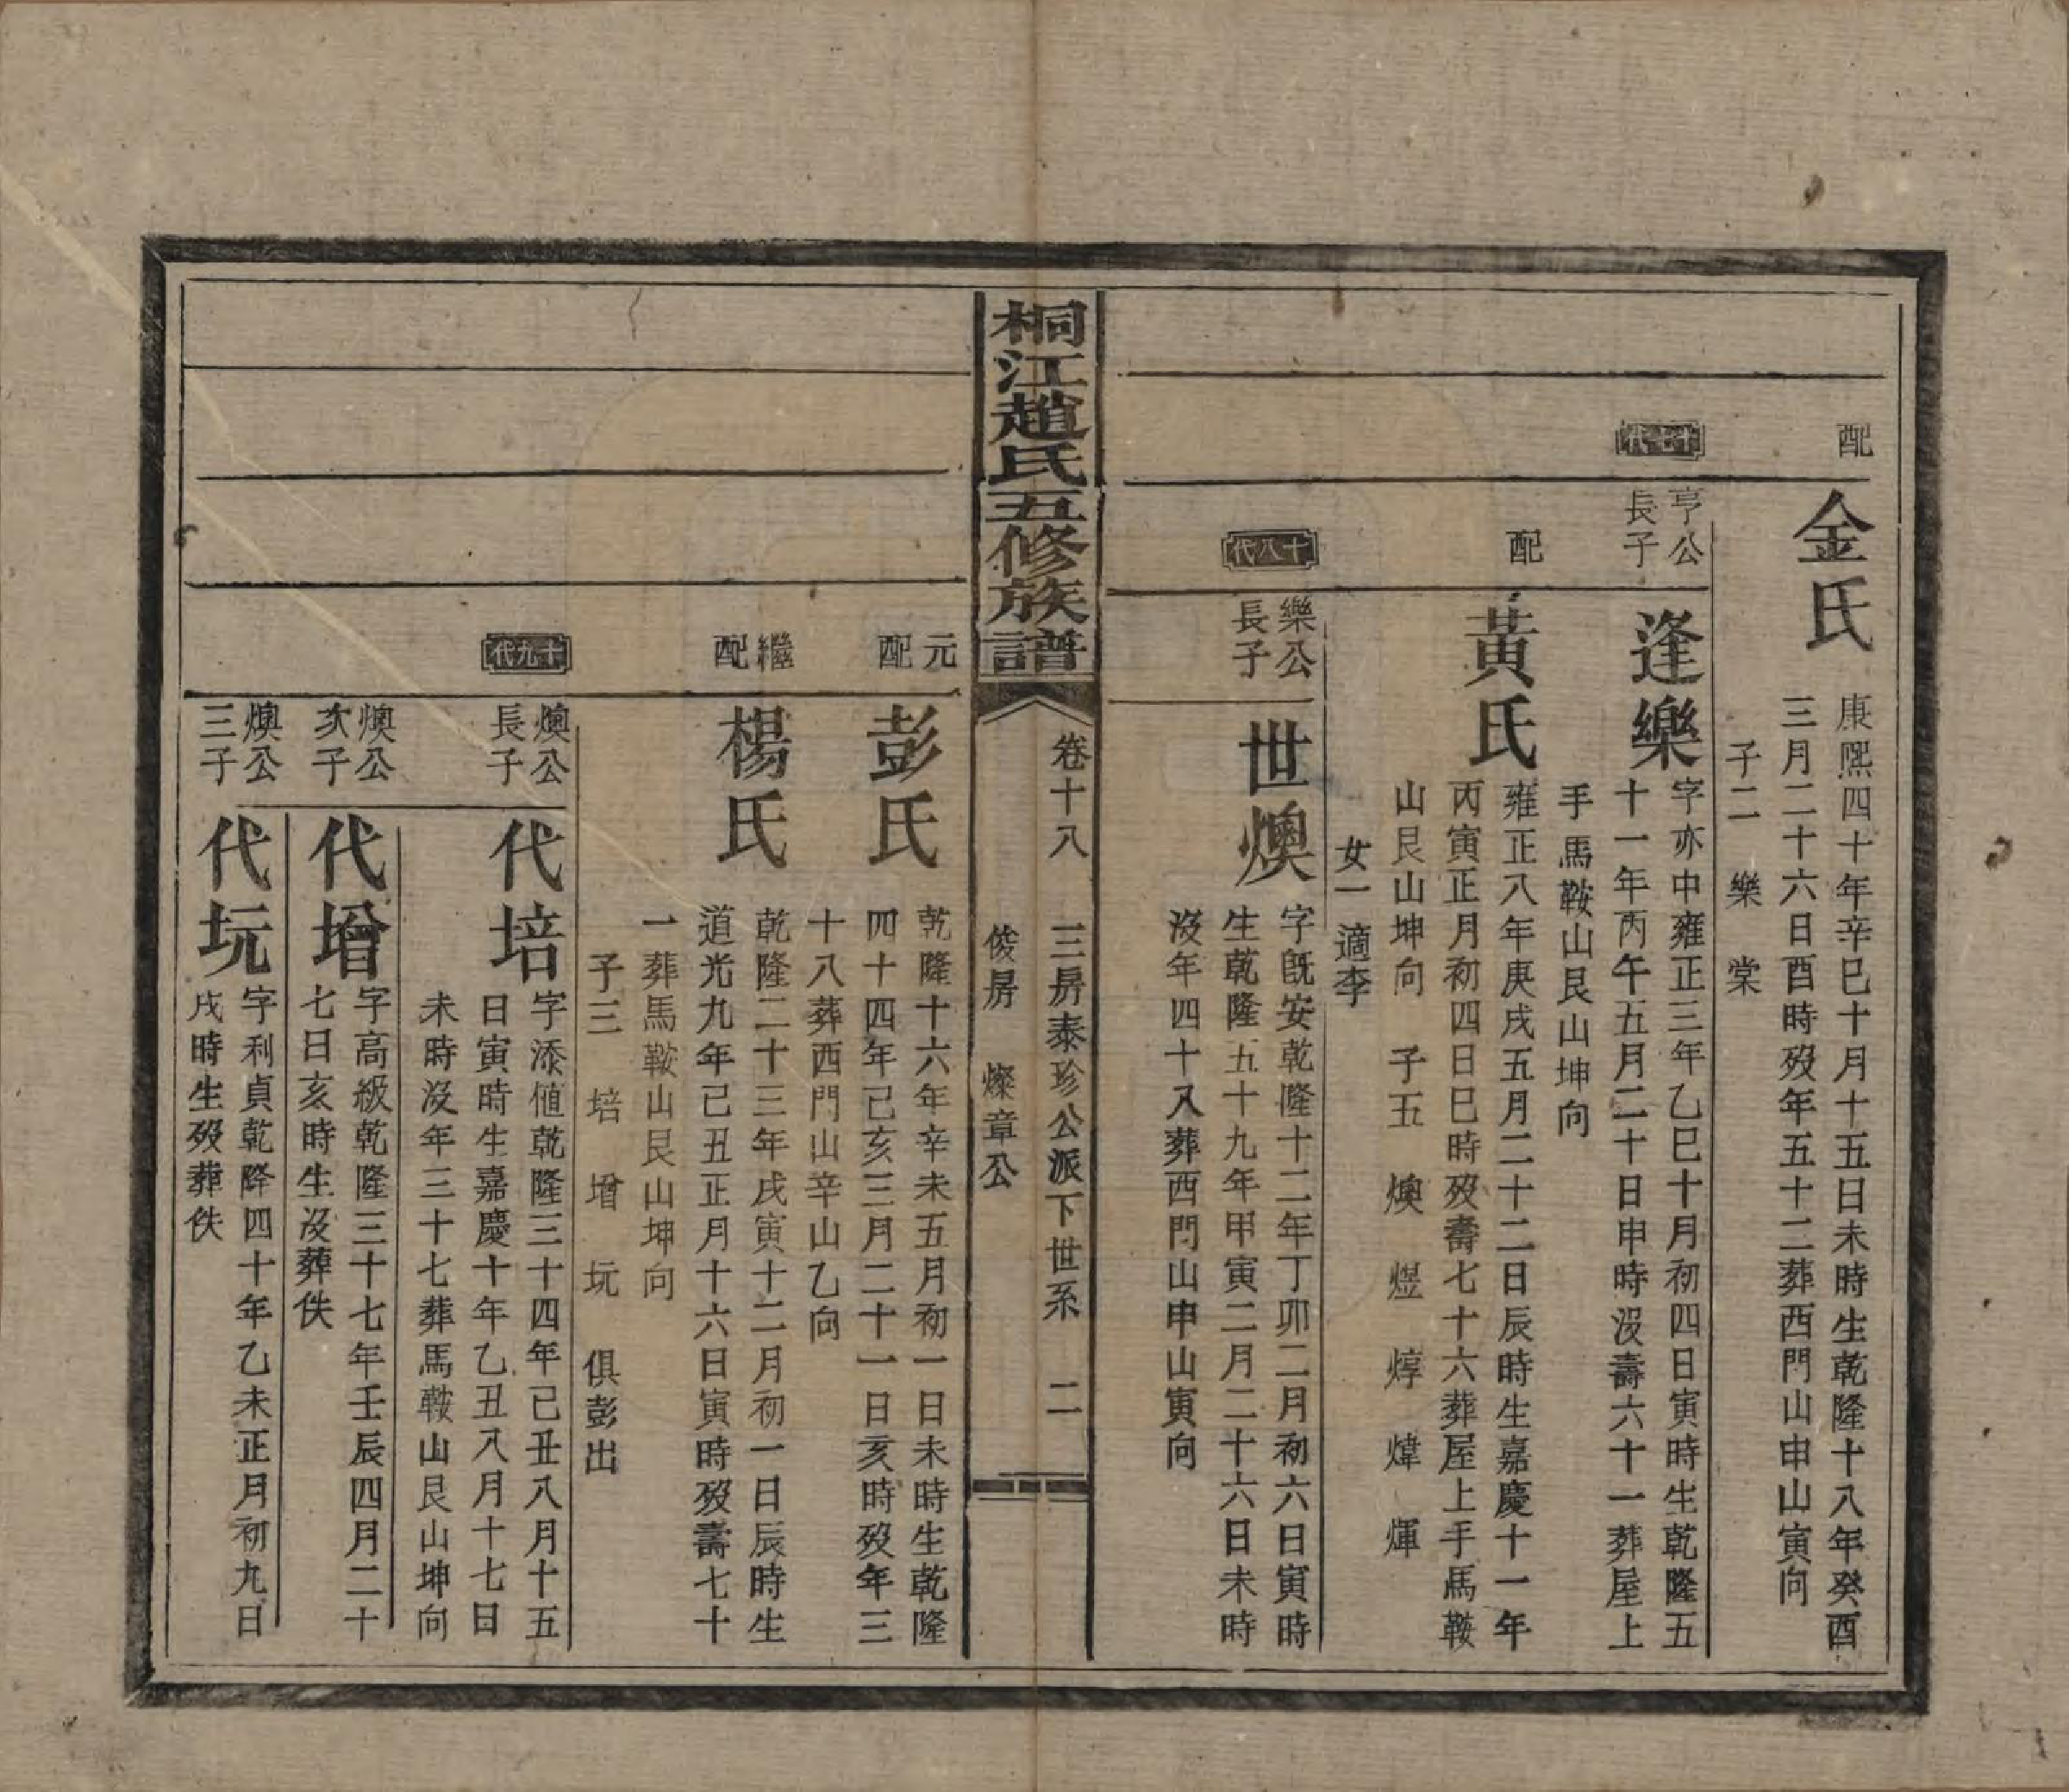 配
金氏
康熙四十年辛巳十月十五日未時生乾隆十八年癸酉
三月二十六日酉時歿年五十二葬西門山申山寅向
子二　樂　棠
十七代
亨公
長子
逢樂
字亦中雍正三年乙巳十月初四日寅時生乾隆五
十一年丙午五月二十日申時沒壽六十一葬屋上
手馬鞍山艮山坤向
配
黃氏
雍正八年庚戌五月二十二日辰時生嘉慶十一年
丙寅正月初四日巳時歿壽七十六葬屋上手馬鞍
山艮山坤向　子五　燠　煜　焞　煒　煇
女一　適李
十八代
樂公
長子
世燠
字旣安乾隆十二年丁卯二月初六日寅時
生乾隆五十九年甲寅二月二十六日未時
沒年四十八葬西門山申山寅向
桐江趙氏五修族譜
卷十八　三房泰珍公派下世系　二
俊房　燦章公
元配
彭氏
乾隆十六年辛未五月初一日未時生乾隆
四十四年己亥三月二十一日亥時歿年三
十八葬西門山辛山乙向
繼配
楊氏
乾隆二十三年戊寅十二月初一日辰時生
道光九年己丑正月十六日寅時歿壽七十
一葬馬鞍山艮山坤向
子三　培　增　玩　俱彭出
十九代
燠公
長子
代培
字添値乾隆三十四年己丑八月十五
日寅時生嘉慶十年乙丑八月十七日
未時沒年三十七葬馬鞍山艮山坤向
燠公
次子
代增
字高級乾隆三十七年壬辰四月二十
七日亥時生沒葬佚
燠公
三子
代玩
字利貞乾隆四十年乙未正月初九日
戌時生歿葬佚